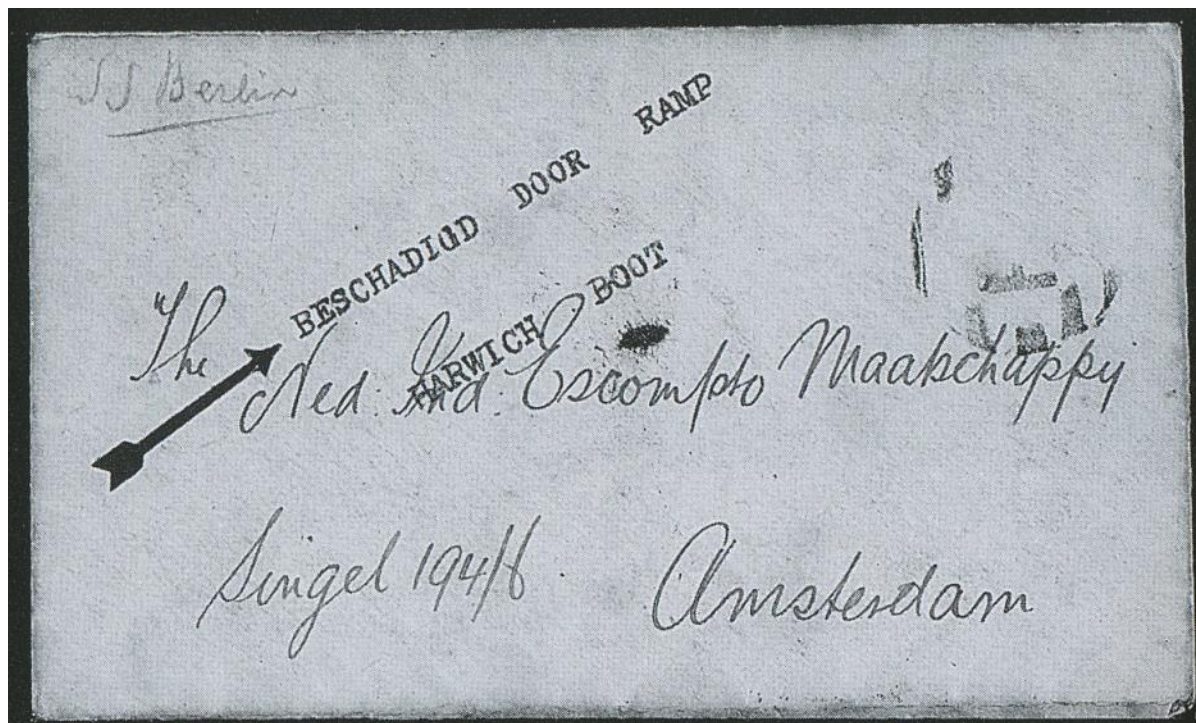 SS Berlin
BESCHADIGD DOOR RAMP
HARWICH BOOT
The
Ned. Ind. Escompto Maatschappy
Singel 194/6
Amsterdam